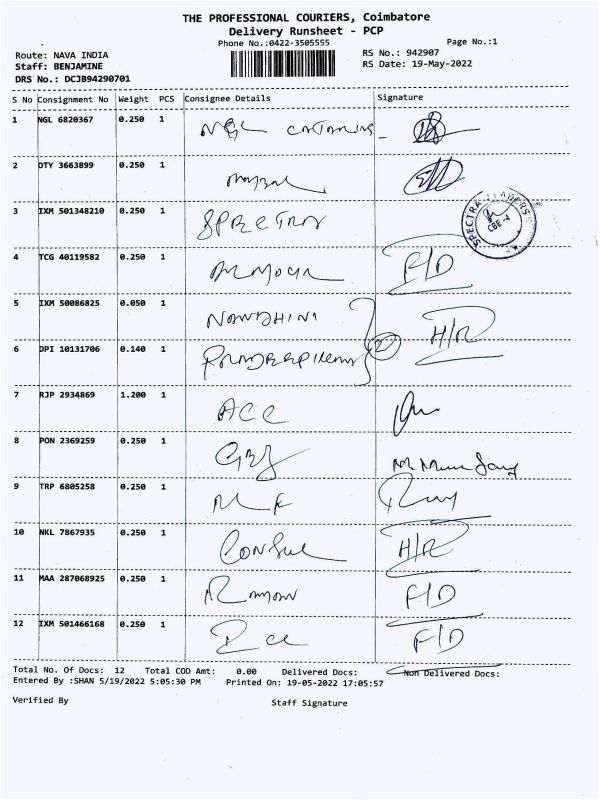 THE PROFESSIONAL COURIERS, Coimbatore
Delivery Runsheet - PCP
Phone No.:0422-3505555
Page No.:1
Route: NAVA INDIA
RS No.: 942907
Staff: BENJAMINE
RS Date: 19-May-2022
DRS No.: DCJB94290701
S No Consignment No Weight PCS Consignee Details Signature
1 NGL 6820367 0.250 1 NGL
2 DTY 3663899 0.250 1
3 IXM 501348210 0.250 1 SPECTRA
SPECTRA LEADERS CBE-4
4 TCG 40119582 0.250 1 F/D
5 IXM 50086825 0.050 1 NANDHINI
H/R
6 DPI 10131706 0.140 1 2
7 RJP 2934869 1.200 1 ACC
8 PON 2369259 0.250 1
9 TRP 6805258 0.250 1
10 NKL 7867935 0.250 1 H/R
11 MAA 287068925 0.250 1 F/D
12 IXM 501466168 0.250 1 F/D
Total No. Of Docs: 12 Total COD Amt: 0.00 Delivered Docs: Non Delivered Docs:
Entered By :SHAN 5/19/2022 5:05:30 PM Printed On: 19-05-2022 17:05:57
Verified By Staff Signature